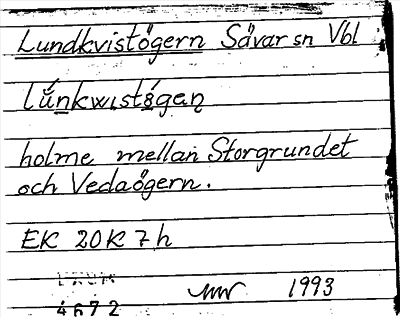 Lundkvistögern Sävar sn Vbl
lúnkwıstö́gan̥
holme mellan Storgrundet
och Vedaögern.
EK 20K 7h
1993
4672